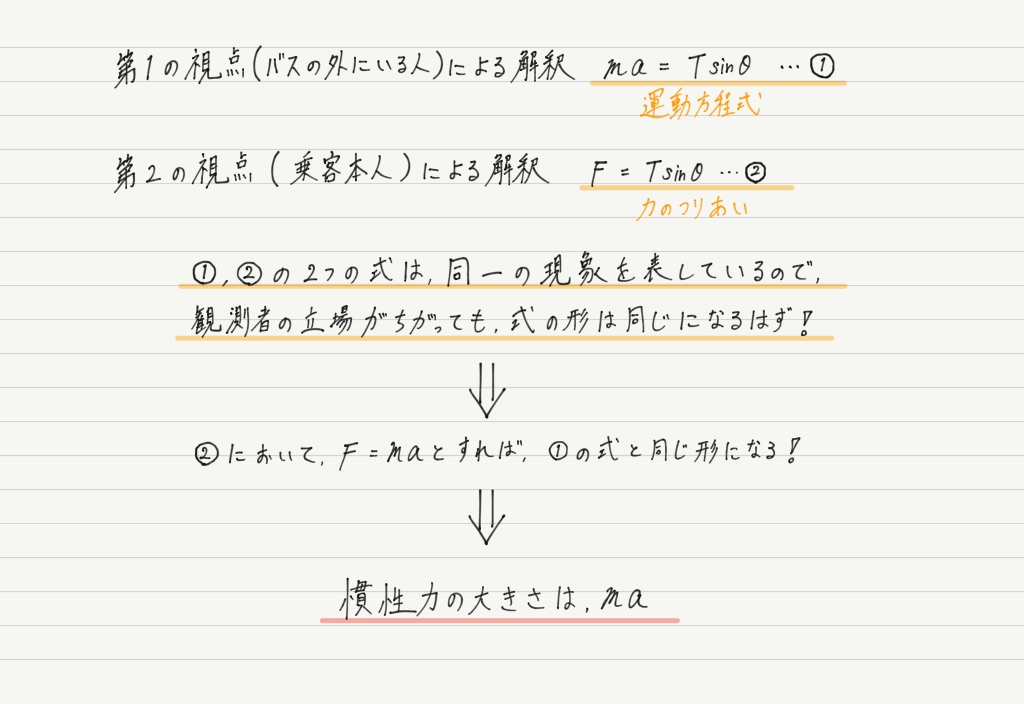 第1の視点(バスの外にいる人)による解釈 ma = Tsinθ … ①
運動方程式
第2の視点(乗客本人)による解釈 F = Tsinθ … ②
力のつりあい
①,②の2つの式は,同一の現象を表しているので,
観測者の立場がちがっても,式の形は同じになるはず!
②において, F = maとすれば, ①の式と同じ形になる!
慣性力の大きさは, ma